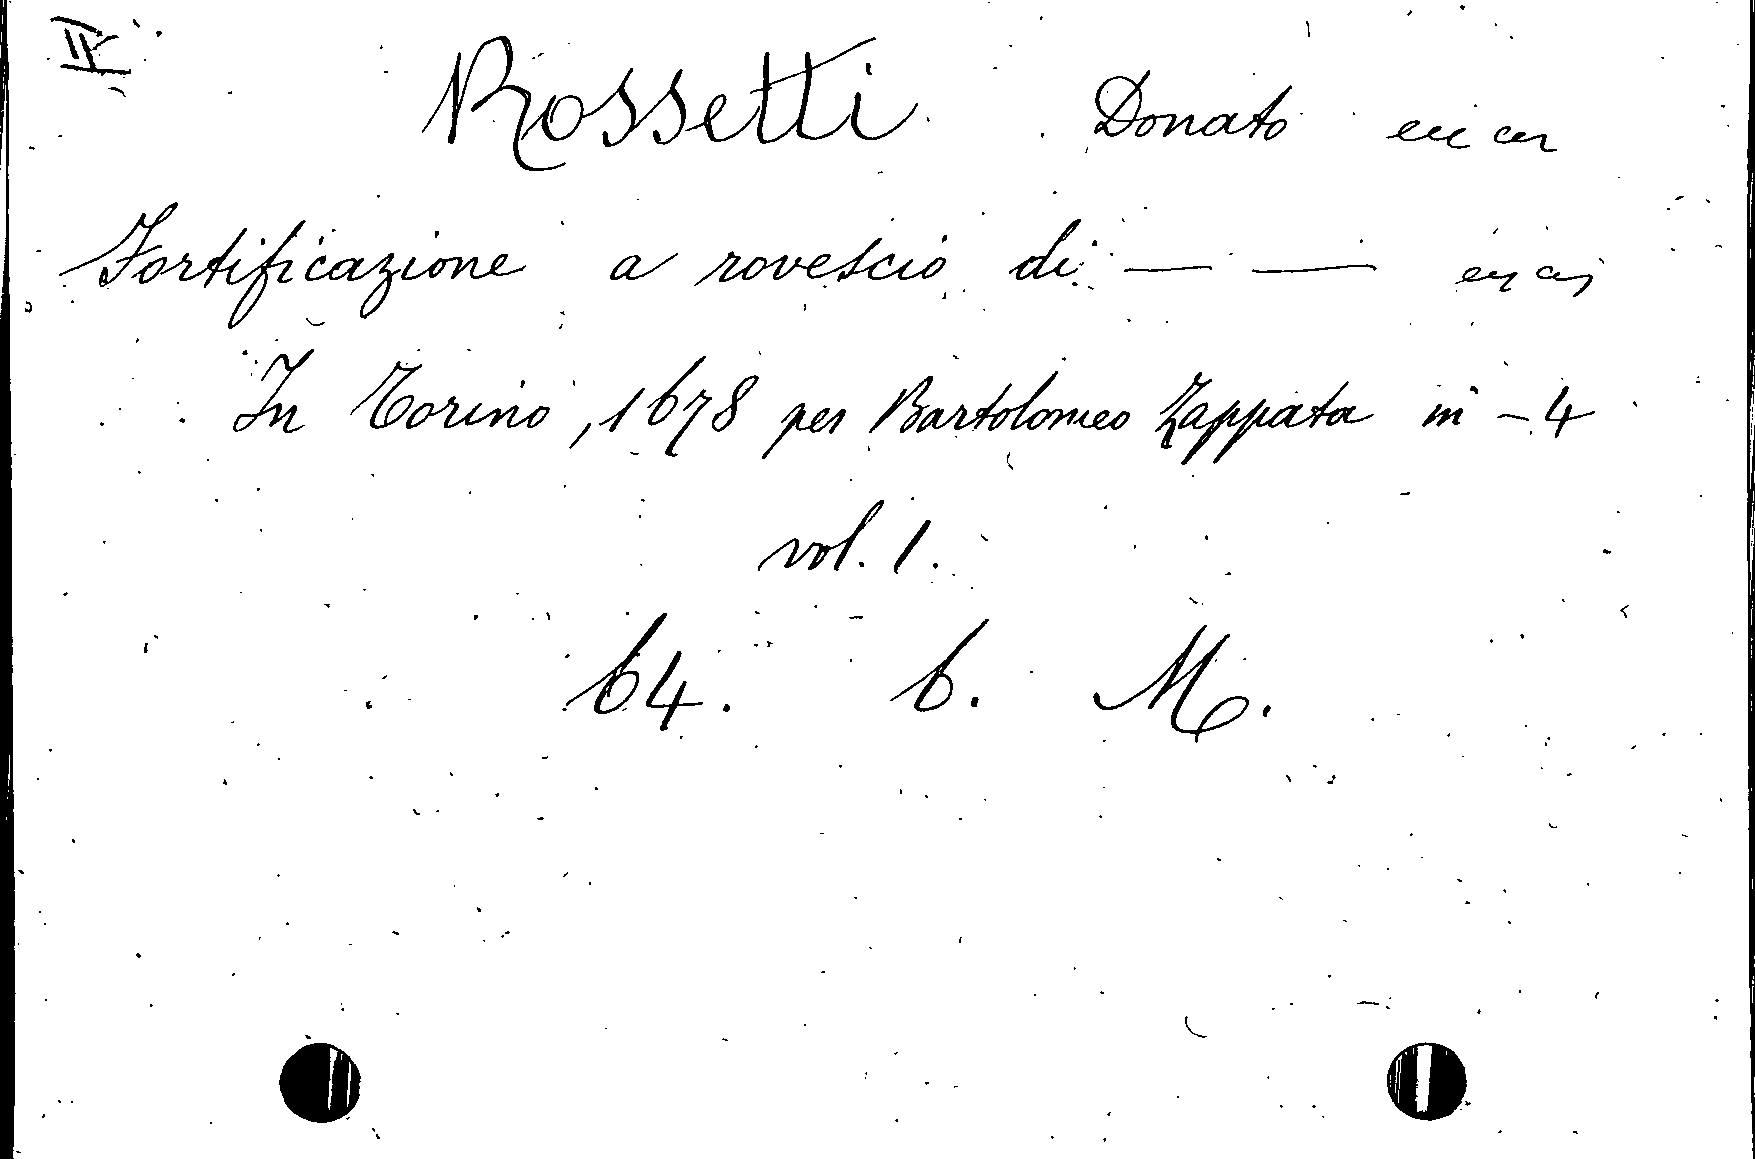 II
Rossetti Donato
Fortificazione a rovescio di — —
In Torino, 1678 per Bartolomeo Zappata in-4
vol. 1.
64. 6. M.